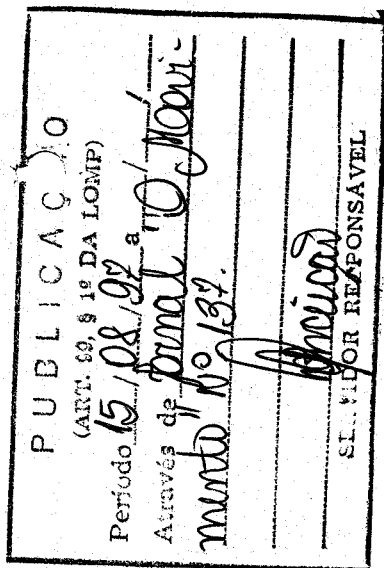 PUBLICAÇÃO
(ART. 99, § 1º DA LOMP)
Período 15/08/97 a
Através de Jornal "O Movi-
mento" Nº 137.
SERVIDOR RESPONSÁVEL